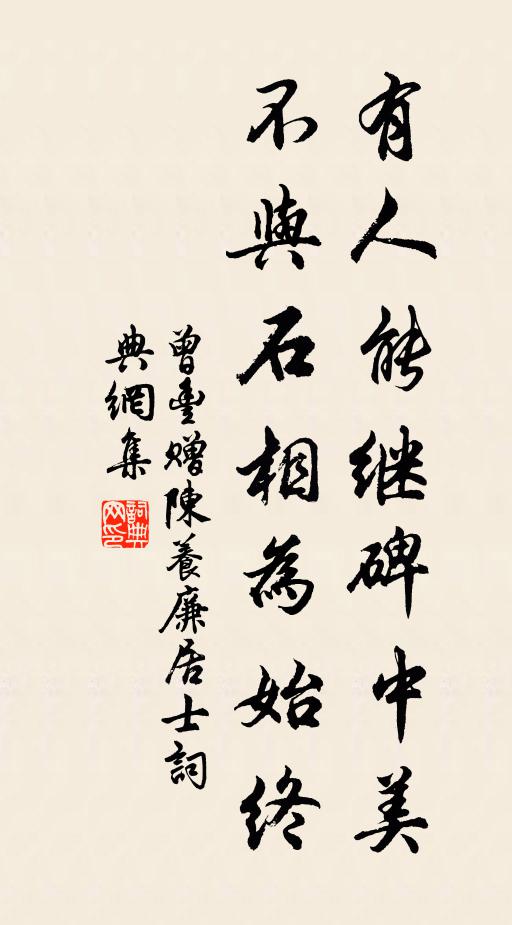 有人能继碑中美
不與石相為始終
曾豐赠陳養廉居士詞
典網集
詞典网印